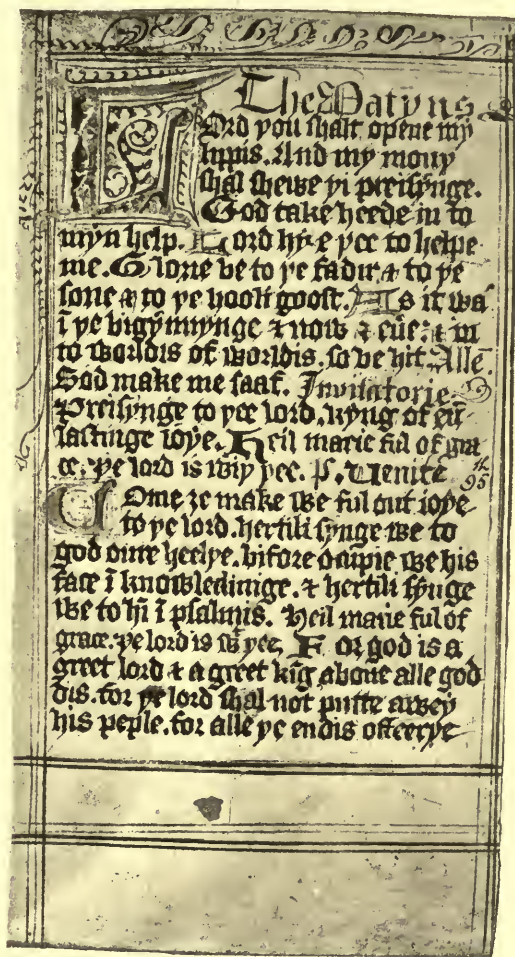 The Matyns
LOrd þou shalt opene my
lippis. And my mouþ
shal shewe þi preisynge.
God take heede in to
myn help. Lord hyȝe þee to helpe
me. Glorie be to þe fadir & to þe
sone & to þe hooli goost. As it was
ī þe bigynnynge & now & eūe: & in
to worldis of worldis. so be hit. Alle
God make me saaf. Invitatorie
Preisynge to þee lord, kyng of eū
lastinge ioye. Heil marie ful of gra
ce, þe lord is wiþ þee. Ps. Venite 95
COme ȝe make we ful out ioye
to þe lord. hertili synge we to
god oure heelþe. bifore ocupie we his
face ī knowlechinge. & hertili synge
we to hī ī psalmis. Heil marie ful of
grace. þe lord is wͭ þee, For god is a
greet lord & a greet kīg aboue alle god
dis. for þe lord shal not putte awey
his peple. for alle þe endis of eerþe